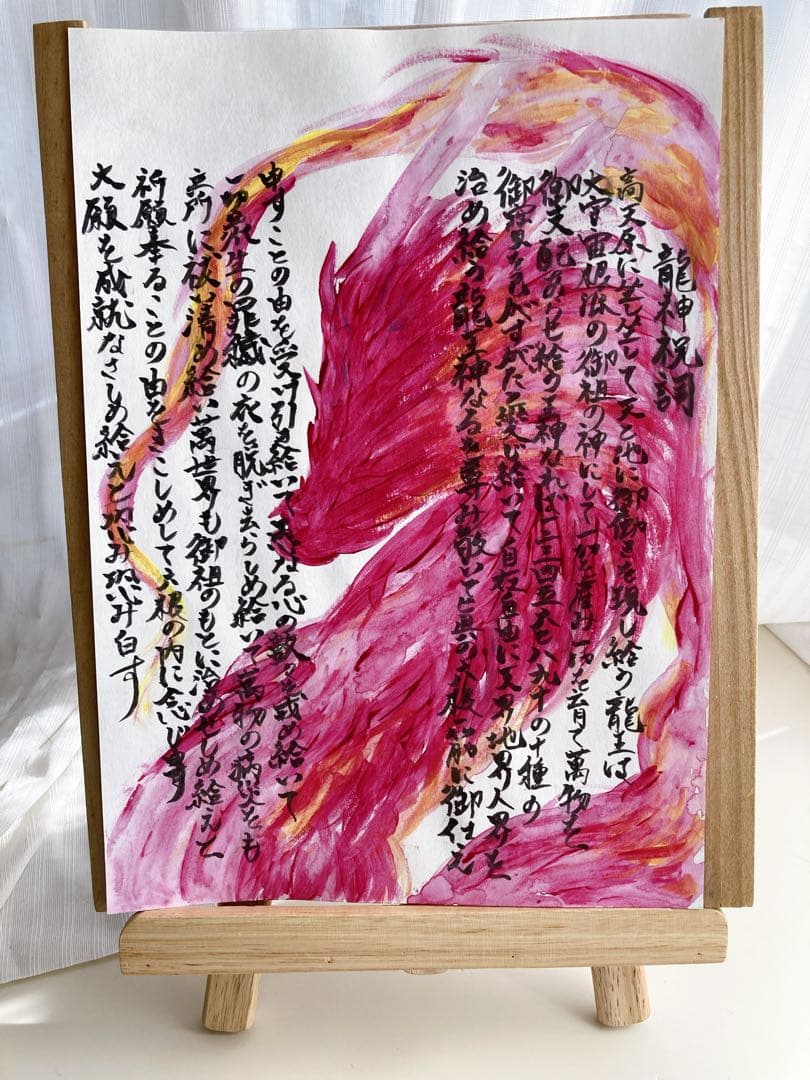 龍神祝詞
高天原に坐し坐して天と地に御働きを現し給う龍王は
大宇宙根源の御祖の神にして一切を産み一切を育て萬物を
御支配あらせ給う王神なれば一二三四五六七八九十の十種の
御寶を己がすがたと変じ給いて自在自由に天界地界人界を
治め給う龍王神なるを尊み敬いて眞の六根一筋に御仕え
申すことの由を受け引き給いて愚かなる心の数々を戒め給いて
一切衆生の罪穢の衣を脱ぎ去らしめ給いて萬物の病災をも
立所に祓い清め給い萬世界も御祖のもとに治めせしめ給えと
祈願奉ることの由をきこしめして六根の内に念じ申す
大願を成就なさしめ給えと恐み恐み白す